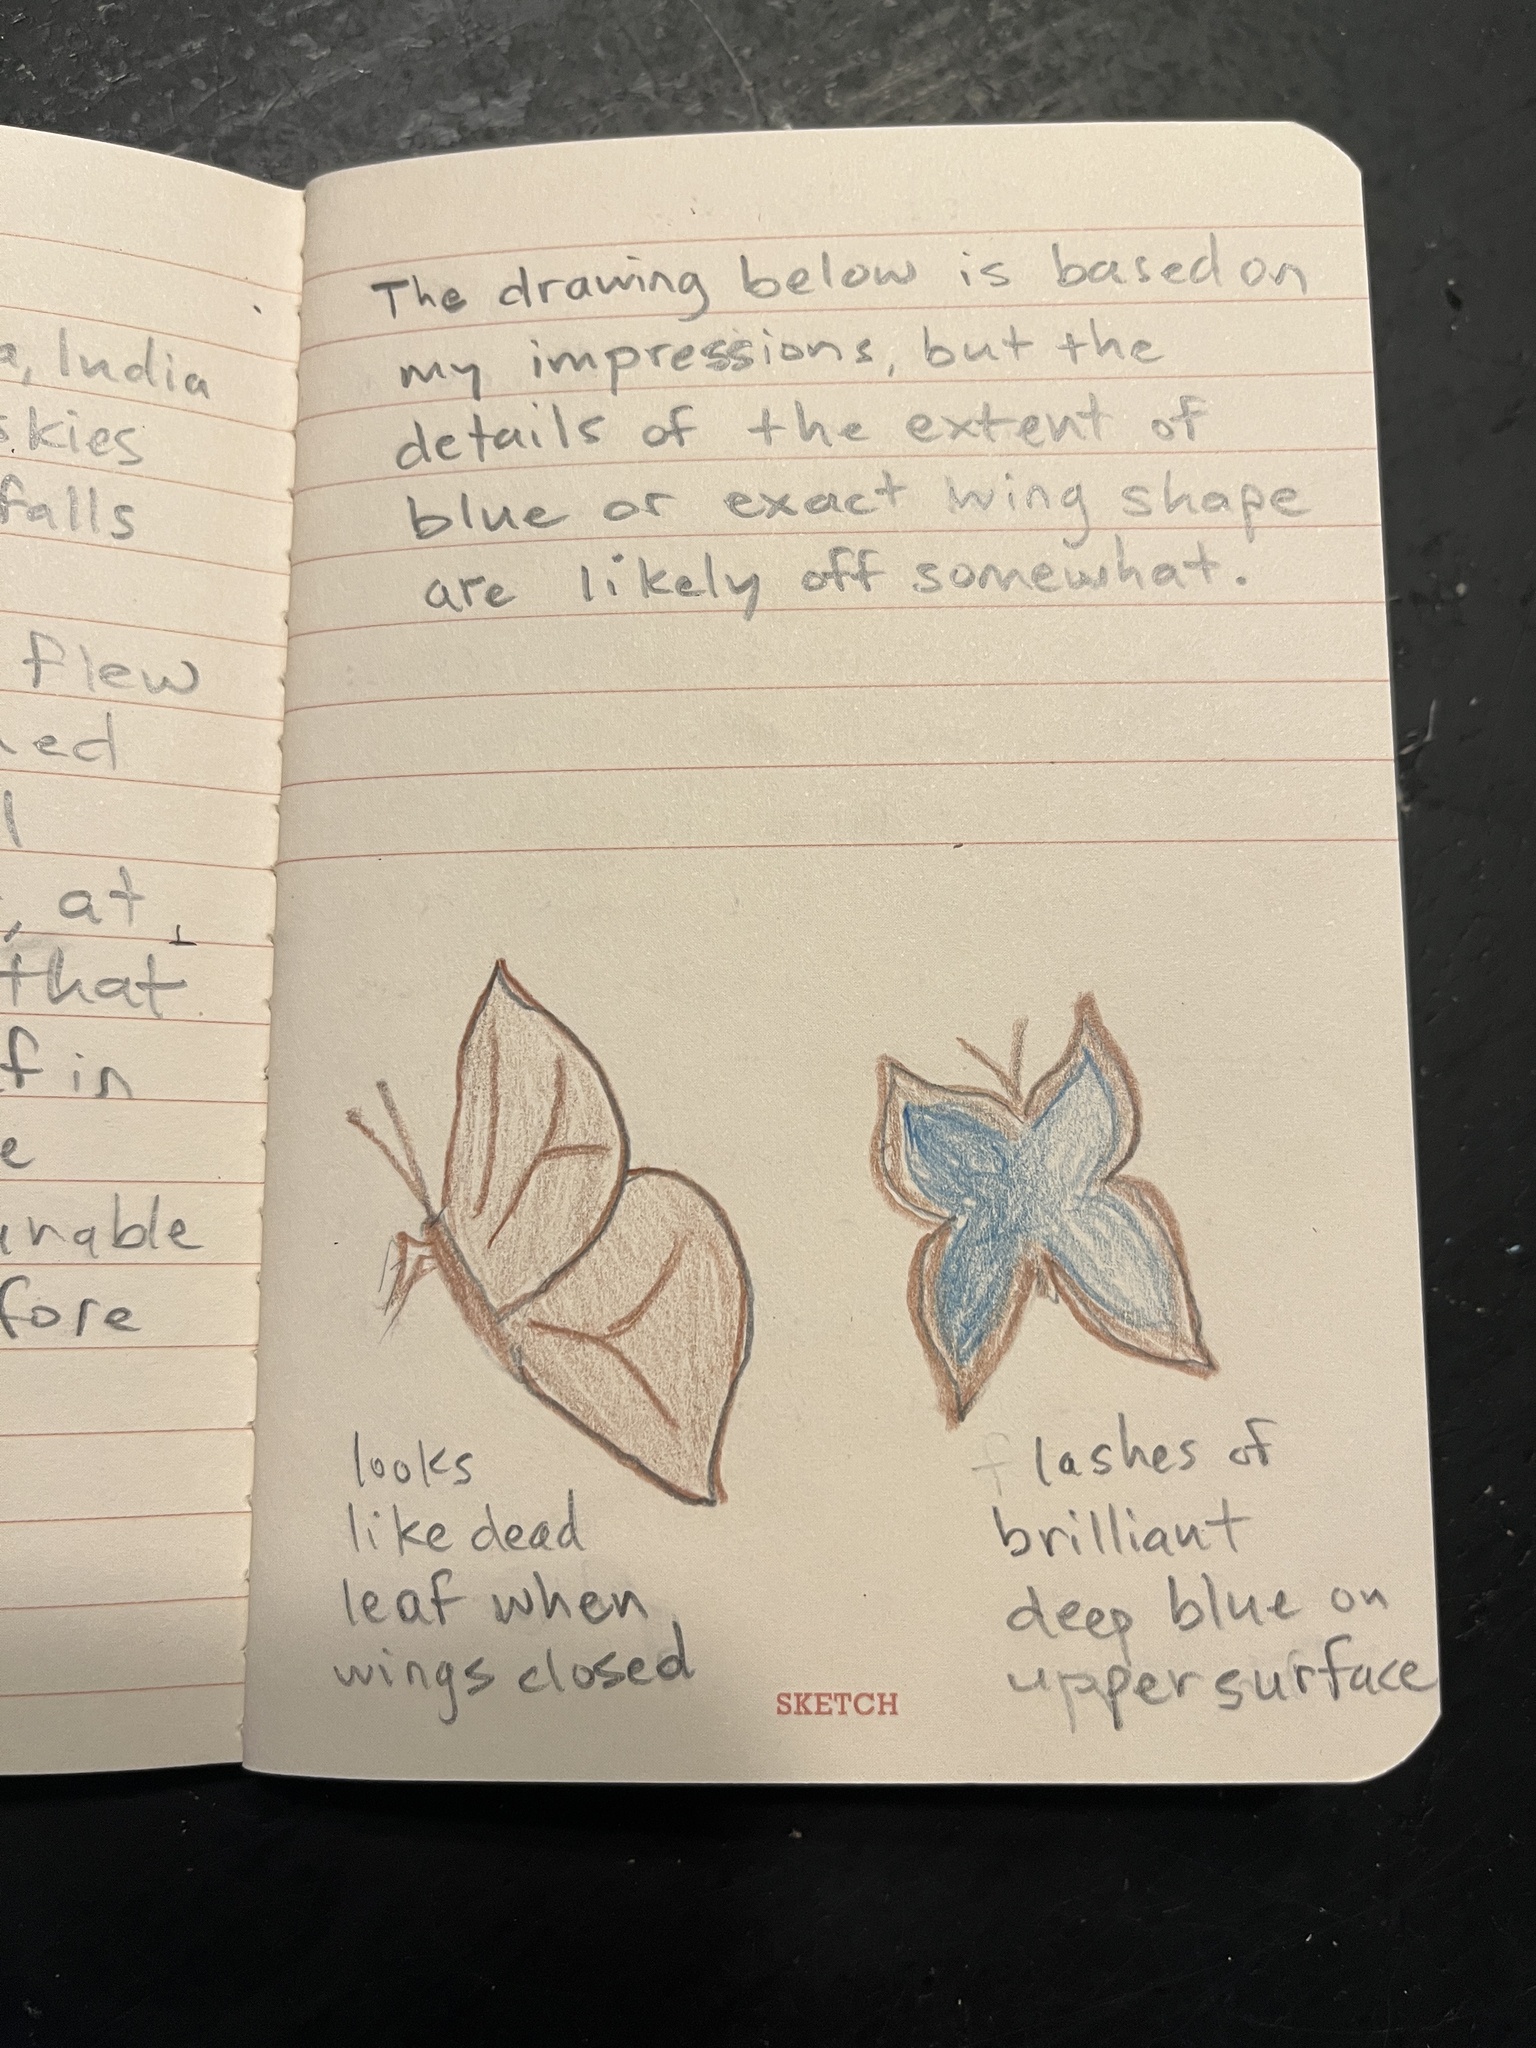 a, India
skies
falls
flew
ned
l
, at
that
f in
e
urable
fore
The drawing below is based on
my impressions, but the
details of the extent of
blue or exact wing shape
are likely off somewhat.
looks
like dead
leaf when
wings closed
flashes of
brilliant
deep blue on
upper surface
SKETCH